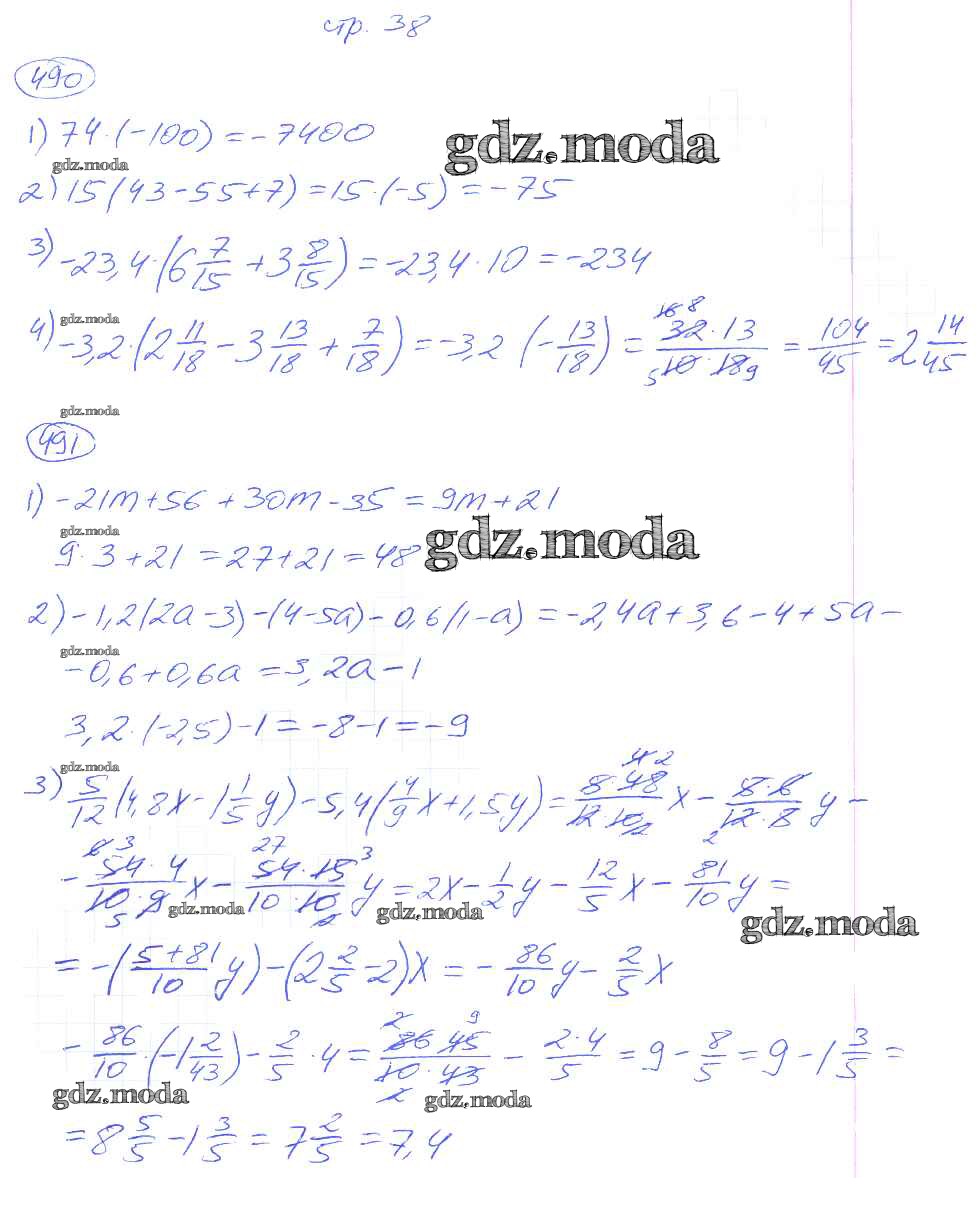 стр. 38
490
1) 74·(-100) = -7400
gdz.moda
gdz.moda
2) 15(43-55+7) = 15·(-5) = -75
3) -23,4·(6 7/15 + 3 8/15) = -23,4·10 = -234
gdz.moda
4) -3,2·(2 11/18 - 3 13/18 + 7/18) = -3,2 (-13/18) = 16 8 32·13 / 5 10·18 9 = 104/45 = 2 14/45
gdz.moda
491
1) -21m+56+30m-35 = 9m+21
gdz.moda
gdz.moda
9·3+21 = 27+21 = 48
2) -1,2(2a-3)-(4-5a)-0,6(1-a) = -2,4a+3,6-4+5a-
gdz.moda
-0,6+0,6a = 3,2a-1
3,2·(-2,5)-1 = -8-1 = -9
gdz.moda
3) 5/12 (4,8x - 1 1/5 y) - 5,4(4/9 x + 1,5y) = 4 2 5·48 / 12·10 2 x - 5·6 / 2 12·5 y -
- 6 3 54·4 / 10·9 5 x - 27 54·15 3 / 10·10 2 y = 2x - 1/2 y - 12/5 x - 81/10 y =
gdz.moda
gdz.moda
gdz.moda
= -(5+81/10 y) - (2 2/5 - 2)x = -86/10 y - 2/5 x
-86/10·(-1 2/43) - 2/5·4 = 2 9 86·45 / 10·43 2 - 2·4/5 = 9 - 8/5 = 9 - 1 3/5 =
gdz.moda
gdz.moda
= 8 5/5 - 1 3/5 = 7 2/5 = 7,4